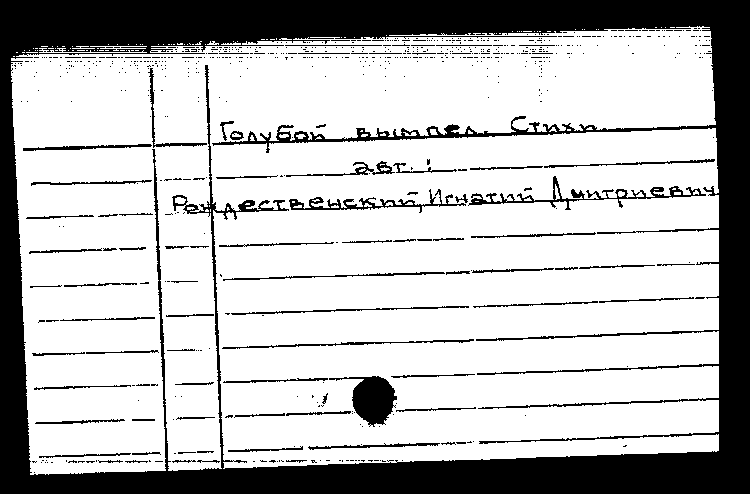 Голубой вымпел. Стихи.
авт.:
Рождественский, Игнатий Дмитриевич